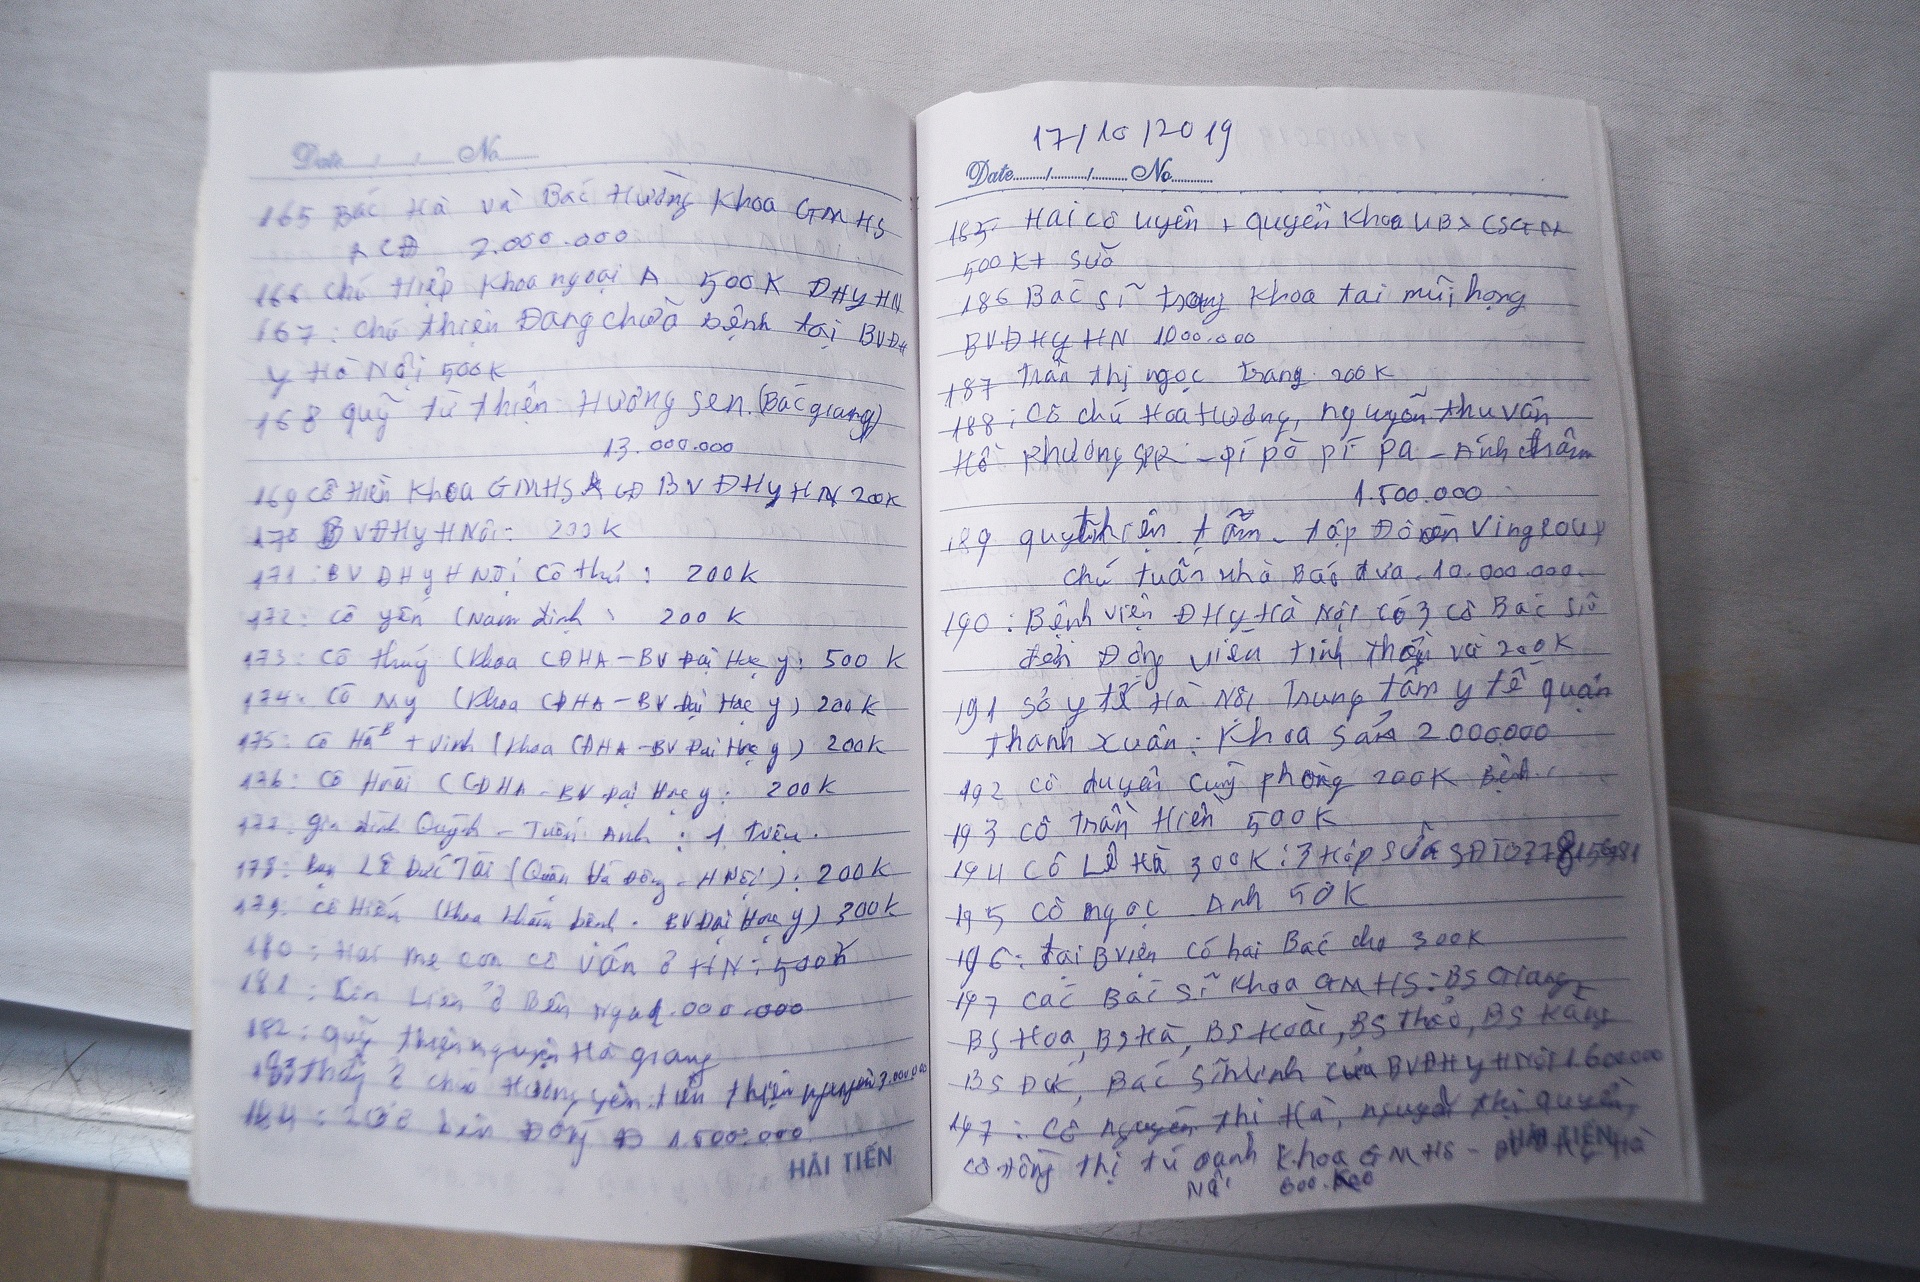 Date....../....../...... No.......
165 Bác Hà và Bác Hường Khoa GMHS
&CĐ 2.000.000
166 chú Hiệp Khoa ngoại A 500K ĐHY HN
167: chú thiện Đang chữa bệnh tại BVĐH
Y Hà Nội 500K
168 quỹ từ thiện Hướng sen. (Bắc giang)
13.000.000
169 cô Hiền Khoa GMHS & CĐ BVĐHY HN 200K
170 BVĐHY HNội: 200K
171: BVĐHY HNội cô thú: 200K
172: cô yến (Nam định: 200K
173: cô thuý (Khoa CĐHA-BV Đại Học y: 500K
174: cô My (Khoa CĐHA-BV Đại Học y) 200K
175: cô Hà + Vinh (Khoa CĐHA-BV Đại Học y) 200K
176: cô Hoài (CĐHA-BV Đại Học y: 200K
177: gia đình Quỳnh - Tuấn Anh: 1 triệu.
178: bạn Lê Đức Tài (Quận Hà Đông - HNội): 200K
179: cô Hiền (Khoa khám bệnh. BV Đại Học y) 300K
180: Hai mẹ con cô Vân ở HN: 500K
181: Liên ở Bên Nga 1.000.000
182: quỹ thiện nguyện Hà giang
183 thầy ở chùa Hương thiện nguyện 3.000.000
184: bên Đông 1.500.000
HẢI TIẾN
17/10/2019
Date......./......./....... No.........
185 Hai cô uyên + quyên Khoa
500K + sữa
186 Bác sĩ trong khoa tai mũi họng
BVĐHY HN 1000.000
187 trần thị ngọc trang 200K
188: cô chú Hoa Hương, nguyễn thu vân
Hồ phương - pí pò pí pa - Ánh trâm
1.500.000
189 quỹ thiện tâm - tập Đoàn Vingroup
chú tuấn nhà Báo đưa. 10.000.000
190: Bệnh viện ĐHY Hà Nội có 3 cô Bác sĩ
đến Động viên tinh thần và 200K
191 Sở y tế Hà Nội Trung tâm y tế quận
thanh xuân: Khoa Sản 2.000.000
192 cô duyên cùng phòng 200K Bệnh.
193 cô trần Hiền 500K
194 Cô Lê Hà 300K: 3 Hộp sữa SĐT
195 cô ngọc Anh 50K
196: tại B viện có hai Bác cho 300K
197 các Bác sĩ Khoa GMHS: BS Giang,
BS Hoa, BS Hà, BS Hoài, BS thảo, BS
BS Đức, Bác sĩ Minh của BVĐHY HNội 1.600.000
197: cô nguyễn thị Hà, nguyễn thị quyên,
cô tống thị tú oanh Khoa GMHS -
Nội 600.
HẢI TIẾN